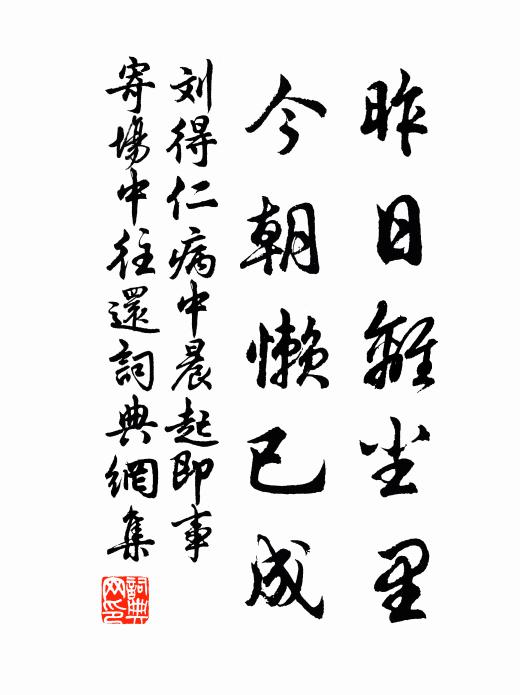 昨日離尘里
今朝懒已成
刘得仁病中晨起即事
寄場中往還詞典網集
詞典
网印